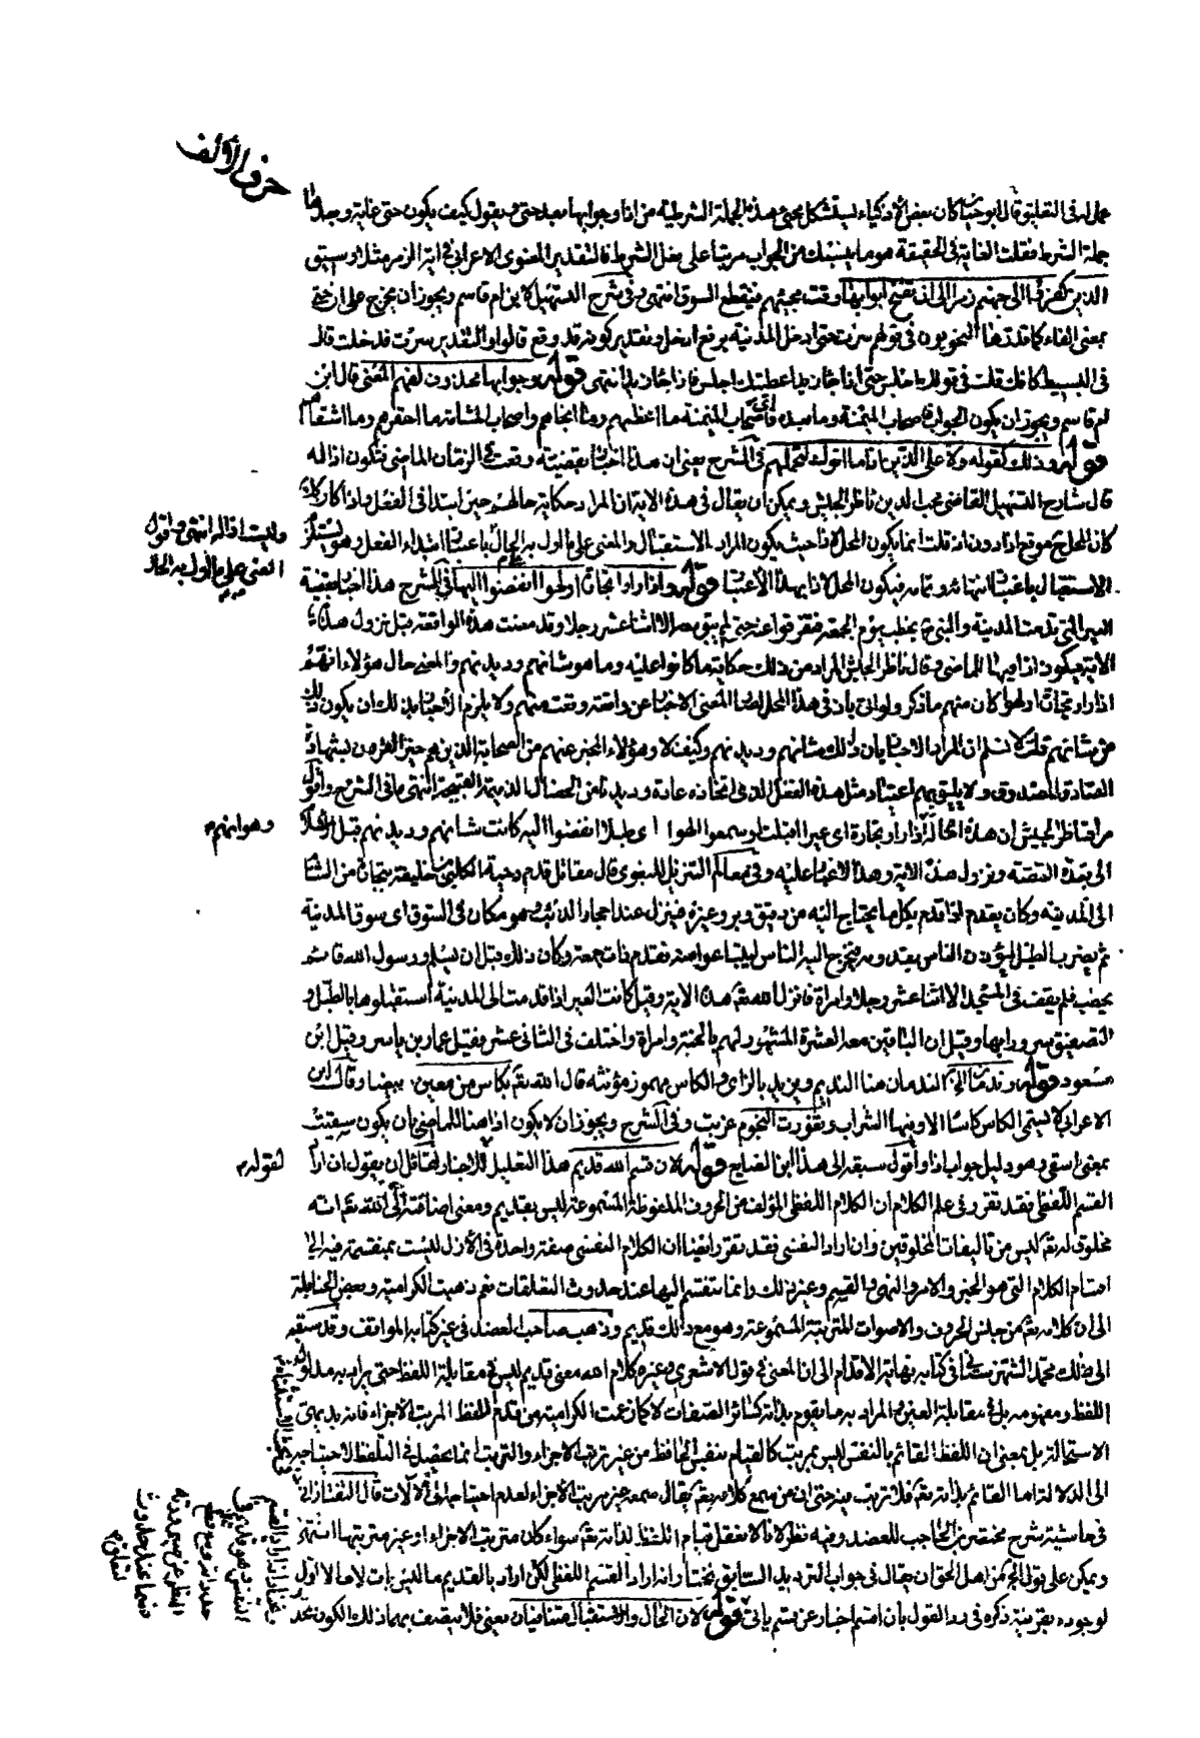 حرف الألف
عمل له في التعليق قال ابو حيان كان بعض الأذكياء يستشكل مجئ هذه الجملة الشرطية من اذا وجوابها بعد حتى ويقول كيف يكون حتى غاية وبعدها
جملة الشرط فقلت الغاية في الحقيقة هو ما ينسبك من الجواب مرتبا على فعل الشرط فالتقدير المعنوى الاعرابى في اية الزمر مثلا وسيق
الذين كفروا الى جهنم زمرا الى ان تفتح ابوابها وقت مجيئهم فينقطع السوق انتهى وفي شرح التسهيل لابن ام قاسم ويجوز ان يخرج على ان حتى
بمعنى الفاء كما قدرها النحويون في قولهم سرت حتى ادخل المدينة برفع ادخل وتقدير كونه قد وقع قالوا والتقدير سرت فدخلت قال
في البسيط كانك قلت في قولك اجلس حتى اذا جاء زيد اعطيتك اجلس فاذا جاء زيد انتهى قوله وجوابها محذوف لفهم المعنى قال ابن
ام قاسم ويجوز ان يكون الجواب فاصحاب الميمنة وما بعده اى فاصحاب الميمنة ما اعظمهم وما انجاهم واصحاب المشأمة ما احقرهم وما اشقاهم
قوله وذلك كقوله ولا على الذين اذا ما اتوك لتحملهم في الشرح يعنى ان هذا اخبار بقضية وقعت في الزمان الماضى فتكون اذا له
قال شارح التسهيل القاضى محب الدين ناظر الجيش ويمكن ان يقال في هذه الاية ان المراد حكاية حالهم حين ابتدا في الفعل واذا كان كذلك
كان المحل موقع اذا دون اذ قلت انما يكون المحل لاذا حيث يكون المراد الاستقبال والمعنى على ما اول به الحال باعتبار ابتداء الفعل وهو يستلزم
وليست اذا له انتهى واقول
المعنى على ما اول به الحال
الاستقبال باعتبار انتهائه وتمامه فيكون المحل لاذا بهذا الاعتبار قوله واذا راوا تجارة او لهوا انفضوا اليها في الشرح هذا اخبار بقضية
العير التى قدمت المدينة والنبى يخطب يوم الجمعة فتفرقوا عنه حتى لم يبق معه الا اثنا عشر رجلا وقد مضت هذه الواقعة قبل نزول هذه
الاية فيكون اذا فيها للماضى وقال ناظر الجيش المراد من ذلك حكاية ما كانوا عليه وما هو شانهم وديدنهم والمعنى حال هؤلاء انهم
اذا راوا تجارة او لهوا كان منهم ما ذكر ولو اتى باذ في هذا المحل لصار المعنى الاخبار عن واقعة وقعت منهم ولا يلزم الاخبار بذلك ان يكون ذلك
من شانهم قلت لا نسلم ان المراد الاخبار بان ذلك شانهم وديدنهم وكيف لا وهؤلاء المخبر عنهم من الصحابة الذين هم خير القرون بشهادة
الصادق المصدوق ولا يليق بهم اعتياد مثل هذه الفعل الذي اتخاذه عادة وديدنا من الخصال الذميمة القبيحة انتهى ما في الشرح واقول
مراد ناظر الجيش ان هذه الحالة اذا راوا تجارة اى عيرا اقبلت او سمعوا لهوا اى طبلا انفضوا اليه كانت شانهم وديدنهم قبل
وهو انهم
الى هذه القصة ونزول هذه الاية وهذا لا غبار عليه وفي معالم التنزيل للبغوى قال مقاتل قدم دحية الكلبى بن خليفة بتجارة من الشام
الى المدينة وكان يقدم اذا قدم بكل ما يحتاج اليه من دقيق وبر وغيره فينزل عند احجار الزيت وهو مكان في السوق اى سوق المدينة
ثم يضرب الطبل ليؤذن الناس بقدومه فيخرج اليه الناس ليبتاعوا منه فقدم ذات جمعة وكان ذلك قبل ان يسلم ورسول الله قائم
يخطب فلم يقف في المسجد الا اثنا عشر رجلا وامراة فانزل الله تعم هذه الاية وقيل كانت العير اذا قدمت الى المدينة استقبلوها بالطبل و
التصفيق سرورا بها وقيل ان الباقين معه العشرة المشهود لهم بالجنة وامراة واختلف في الثانى عشر فقيل عمار بن ياسر وقيل ابن
مسعود قوله وندمان الخ الندمان هنا النديم ويزيد بالزاى والكاس مهموز مؤنثة قال الله تعم بكاس من معين بيضاء وقال ابن
الاعرابى لا يسمى الكاس كاسا الا وفيها الشراب وتغورت النجوم غربت وفي الشرح ويجوز ان لا يكون اذا هنا للماضى بان يكون سقيت
بمعنى اسقى وهو دليل جواب اذا واقول سبقه الى هذا ابن الضايع قوله لان قسم الله قديم هذا التعليل للاخبار لقائل ان يقول ان اراد
لقوله
القسم اللفظى فقد تقرر في علم الكلام ان الكلام اللفظى المؤلف من الحروف الملفوظة المسموعة ليس بقديم ومعنى اضافته الى الله تعم انه
مخلوق له تعم ليس من تاليفات المخلوقين وان اراد النفسى فقد تقرر ايضا ان الكلام النفسى صفة واحدة في الأزل ليست بمنقسمة فيه الى
اقسام الكلام التى هو الخبر والامر والنهى والقسم وغير ذلك وانما تنقسم اليها عند حدوث التعلقات نعم ذهبت الكرامية وبعض الحنابلة
الى ان كلامه تعم من جنس الحروف والاصوات المترتبة المسموعة وهو مع ذلك قديم وذهب صاحب العضد في غير كتابه المواقف وقد سبقه
الى ذلك محمد الشهرستانى في كتابه نهاية الاقدام الى ان المعنى في قول الاشعرى وغيره كلام الله معنى قديم ليس في مقابلة اللفظ حتى يراد به مدلول
اللفظ ومفهومه بل في مقابلة العين والمراد به ما يقوم بذاته كسائر الصفات لا كما زعمت الكرامية من قدم اللفظ المرتب الاجزاء فانه بديهى
الاستحالة بل بمعنى ان اللفظ القائم بالنفس ليس بمرتب كالقيام بنفس الحافظ من غير ترتب الاجزاء والترتب انما يحصل في التلفظ لاحتياجه
الى الالة اما القائم بذاته تعم فلا ترتب فيه حتى ان من سمع كلامه تعم يقال سمعه غير مرتب الاجزاء لعدم احتياجه الى الآلات قال التفتازانى
في حاشية شرح مختصر بن الحاجب للعضد وفيه نظر لانا لا نعقل قيام اللفظ لذاته تعم سواء كان مترتب الاجزاء او غير مترتبها انتهى
ويمكن على قول الجمهور من اهل الحق ان يقال في جواب الترديد السابق نختار انه اراد القسم اللفظى لكن اراد بالقديم ما ليس بات لا ما لا اول
لوجوده بقرينة ذكره في رد القول بان اقسم اخبار عن قسم ياتى قوله لان الحال والاستقبال متنافيان يعنى فلا يتصف بهما ذلك الكون